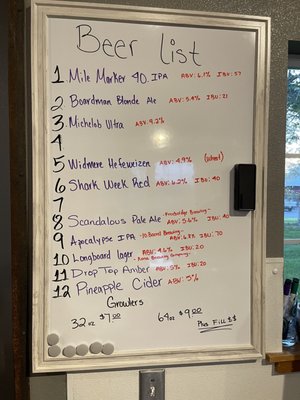 Beer List
1 Mile Marker 40. IPA ABV: 6.1% IBU: 57
2 Boardman Blonde Ale ABV: 5.4% IBU: 21
3 Michelob Ultra ABV: 4.2%
4
5 Widmere Hefeweizen ABV: 4.9% (wheat)
6 Shark Week Red ABV: 6.2% IBU: 40
7
8 Scandalous Pale Ale -Freebridge Brewing- ABV: 5.6% IBU: 40
9 Apocalypse IPA -10 Barrel Brewing- ABV: 6.8% IBU: 70
10 Longboard lager ABV: 4.6% IBU: 20 -Kona Brewing Company-
11 Drop Top Amber ABV: 5% IBU: 20
12 Pineapple Cider ABV: 5%
Growlers
32 oz $7.00 64 oz $9.00
Plus Fill $$